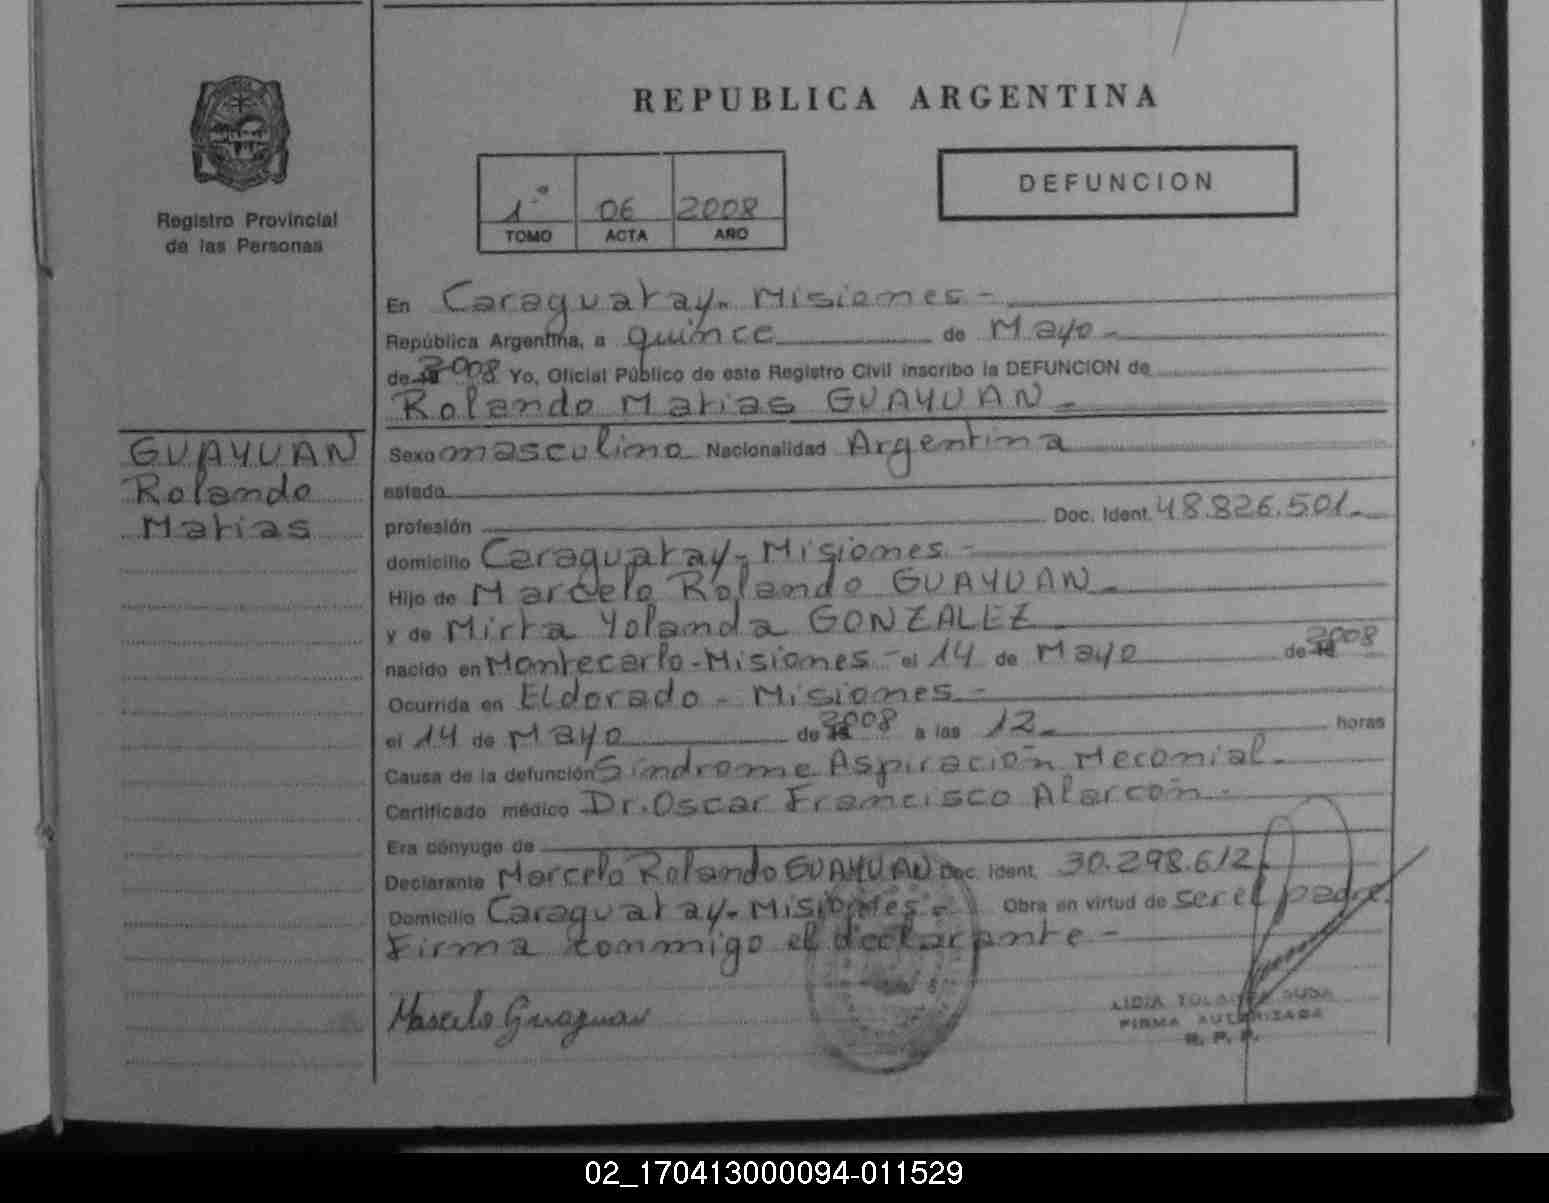 REPUBLICA ARGENTINA
Registro Provincial
de las Personas
1º 06 2008
TOMO ACTA AÑO
DEFUNCION
En Caraguatay- Misiones-
República Argentina, a quince de Mayo-
de 2008 Yo, Oficial Público de este Registro Civil inscribo la DEFUNCION de
Rolando Matias GUAYUAN-
GUAYUAN
Rolando
Matias
Sexo masculino Nacionalidad Argentina
estado
profesión Doc. Ident. 48.826.501.-
domicilio Caraguatay- Misiones-
Hijo de Marcelo Rolando GUAYUAN-
y de Mirta Yolanda GONZALEZ
nacido en Montecarlo-Misiones- el 14 de Mayo de 2008
Ocurrida en Eldorado- Misiones-
el 14 de Mayo de 2008 a las 12- horas
Causa de la defunción Sindrome Aspiración Meconial-
Certificado médico Dr. Oscar Francisco Alarcón-
Era cónyuge de
Declarante Marcelo Rolando GUAYUAN Doc. Ident. 30.298.612
Domicilio Caraguatay- Misiones- Obra en virtud de ser el padre.
Firma conmigo el declarante-
Marcelo Guayuan
LIDIA
FIRMA AUTORIZADA
R. P. P.
02_170413000094-011529